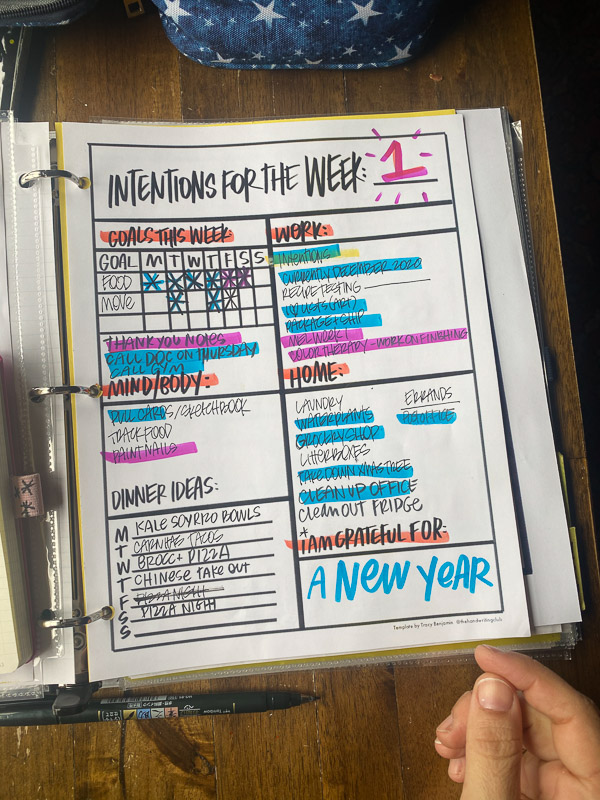 INTENTIONS FOR THE WEEK: 1
GOALS THIS WEEK:
GOAL M T W T F S S
FOOD
MOVE
THANK YOU NOTES
CALL DOC ON THURSDAY
CALL GYM
MIND/BODY:
PULL CARDS/SKETCHBOOK
TRACK FOOD
PAINT NAILS
DINNER IDEAS:
M KALE SOYRIZO BOWLS
T CARNITAS TACOS
W BROCC + PIZZA
T CHINESE TAKE OUT
F PIZZA NIGHT
S PIZZA NIGHT
S
WORK:
INTENTIONS
CURRENTLY DECEMBER 2020
RECIPE TESTING
LISTS (ART)
PACKAGE + SHIP
NETWORK
COLOR THERAPY - WORK ON FINISHING
HOME:
LAUNDRY
WATER PLANTS
GROCERY SHOP
LITTERBOXES
TAKE DOWN XMAS TREE
CLEAN UP OFFICE
CLEAN OUT FRIDGE
*
ERRANDS
POST OFFICE
I AM GRATEFUL FOR:
A NEW YEAR
Template by Tracy Benjamin @thehandwritingclub